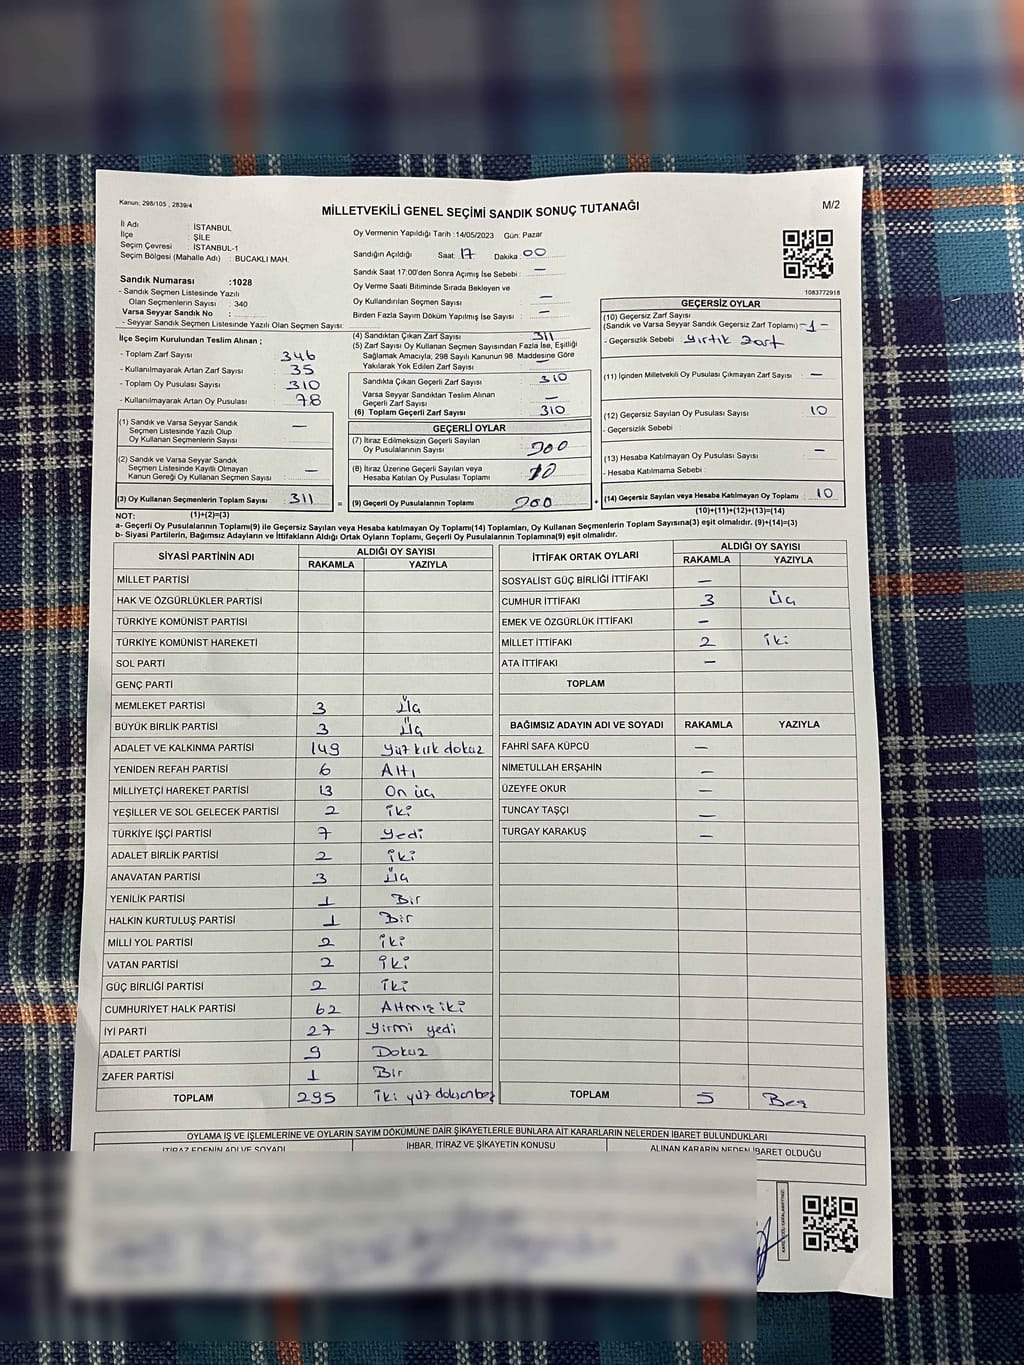 Kanun; 298/105 , 2839/4
MİLLETVEKİLİ GENEL SEÇİMİ SANDIK SONUÇ TUTANAĞI
M/2
İl Adı : İSTANBUL
İlçe : ŞİLE
Seçim Çevresi : İSTANBUL-1
Seçim Bölgesi (Mahalle Adı) : BUCAKLI MAH.
Sandık Numarası :1028
- Sandık Seçmen Listesinde Yazılı
Olan Seçmenlerin Sayısı : 340
Varsa Seyyar Sandık No :
- Seyyar Sandık Seçmen Listesinde Yazılı Olan Seçmen Sayısı:
Oy Vermenin Yapıldığı Tarih :14/05/2023 Gün: Pazar
Sandığın Açıldığı Saat: 17 Dakika: 00
Sandık Saat 17:00'den Sonra Açımış İse Sebebi : —
Oy Verme Saati Bitiminde Sırada Bekleyen ve
Oy Kullandırılan Seçmen Sayısı : —
Birden Fazla Sayım Döküm Yapılmış İse Sayısı : —
1083772918
İlçe Seçim Kurulundan Teslim Alınan ;
- Toplam Zarf Sayısı : 346
- Kullanılmayarak Artan Zarf Sayısı : 35
- Toplam Oy Pusulası Sayısı : 310
- Kullanılmayarak Artan Oy Pusulası : 78
(1) Sandık ve Varsa Seyyar Sandık
Seçmen Listesinde Yazılı Olup
Oy Kullanan Seçmenlerin Sayısı : —
(2) Sandık ve Varsa Seyyar Sandık
Seçmen Listesinde Kayıtlı Olmayan
Kanun Gereği Oy Kullanan Seçmen Sayısı : —
(3) Oy Kullanan Seçmenlerin Toplam Sayısı : 311
(1)+(2)=(3)
(4) Sandıktan Çıkan Zarf Sayısı : 311
(5) Zarf Sayısı Oy Kullanan Seçmen Sayısından Fazla İse, Eşitliği
Sağlamak Amacıyla; 298 Sayılı Kanunun 98. Maddesine Göre
Yakılarak Yok Edilen Zarf Sayısı : —
Sandıkta Çıkan Geçerli Zarf Sayısı : 310
Varsa Seyyar Sandıktan Teslim Alınan
Geçerli Zarf Sayısı : —
(6) Toplam Geçerli Zarf Sayısı : 310
GEÇERLİ OYLAR
(7) İtiraz Edilmeksizin Geçerli Sayılan
Oy Pusulasının Sayısı : 300
(8) İtiraz Üzerine Geçerli Sayılan veya
Hesaba Katılan Oy Pusulası Toplamı :
= (9) Geçerli Oy Pusulalarının Toplamı : 300
GEÇERSİZ OYLAR
(10) Geçersiz Zarf Sayısı
(Sandık ve Varsa Seyyar Sandık Geçersiz Zarf Toplamı) -1-
- Geçersizlik Sebebi : yırtık zarf
(11) İçinden Milletvekili Oy Pusulası Çıkmayan Zarf Sayısı : —
(12) Geçersiz Sayılan Oy Pusulası Sayısı : 10
- Geçersizlik Sebebi :
(13) Hesaba Katılmayan Oy Pusulası Sayısı : —
- Hesaba Katılmama Sebebi :
+ (14) Geçersiz Sayılan veya Hesaba Katılmayan Oy Toplamı : 10
(10)+(11)+(12)+(13)=(14)
NOT:
a- Geçerli Oy Pusulalarının Toplamı(9) ile Geçersiz Sayılan veya Hesaba katılmayan Oy Toplamı(14) Toplamları, Oy Kullanan Seçmenlerin Toplam Sayısına(3) eşit olmalıdır. (9)+(14)=(3)
b- Siyasi Partilerin, Bağımsız Adayların ve İttifakların Aldığı Ortak Oyların Toplamı, Geçerli Oy Pusulalarının Toplamına(9) eşit olmalıdır.
SİYASİ PARTİNİN ADI ALDIĞI OY SAYISI
RAKAMLA YAZIYLA
MİLLET PARTİSİ
HAK VE ÖZGÜRLÜKLER PARTİSİ
TÜRKİYE KOMÜNİST PARTİSİ
TÜRKİYE KOMÜNİST HAREKETİ
SOL PARTİ
GENÇ PARTİ
MEMLEKET PARTİSİ 3 Üç
BÜYÜK BİRLİK PARTİSİ 3 Üç
ADALET VE KALKINMA PARTİSİ 149 Yüz kırk dokuz
YENİDEN REFAH PARTİSİ 6 Altı
MİLLİYETÇİ HAREKET PARTİSİ 13 On üç
YEŞİLLER VE SOL GELECEK PARTİSİ 2 iki
TÜRKİYE İŞÇİ PARTİSİ 7 Yedi
ADALET BİRLİK PARTİSİ 2 iki
ANAVATAN PARTİSİ 3 Üç
YENİLİK PARTİSİ 1 Bir
HALKIN KURTULUŞ PARTİSİ 1 Bir
MİLLİ YOL PARTİSİ 2 iki
VATAN PARTİSİ 2 iki
GÜÇ BİRLİĞİ PARTİSİ 2 iki
CUMHURİYET HALK PARTİSİ 62 Altmış iki
İYİ PARTİ 27 Yirmi yedi
ADALET PARTİSİ 9 Dokuz
ZAFER PARTİSİ 1 Bir
TOPLAM 295 iki yüz doksan beş
İTTİFAK ORTAK OYLARI ALDIĞI OY SAYISI
RAKAMLA YAZIYLA
SOSYALİST GÜÇ BİRLİĞİ İTTİFAKI —
CUMHUR İTTİFAKI 3 Üç
EMEK VE ÖZGÜRLÜK İTTİFAKI —
MİLLET İTTİFAKI 2 iki
ATA İTTİFAKI —
TOPLAM
BAĞIMSIZ ADAYIN ADI VE SOYADI RAKAMLA YAZIYLA
FAHRİ SAFA KÜPCÜ —
NİMETULLAH ERŞAHİN —
ÜZEYFE OKUR —
TUNCAY TAŞÇI —
TURGAY KARAKUŞ —
TOPLAM 5 Beş
OYLAMA İŞ VE İŞLEMLERİNE VE OYLARIN SAYIM DÖKÜMÜNE DAİR ŞİKAYETLERLE BUNLARA AİT KARARLARIN NELERDEN İBARET BULUNDUKLARI
İTİRAZ EDENİN ADI VE SOYADI İHBAR, İTİRAZ VE ŞİKAYETİN KONUSU ALINAN KARARIN NEDEN İBARET OLDUĞU